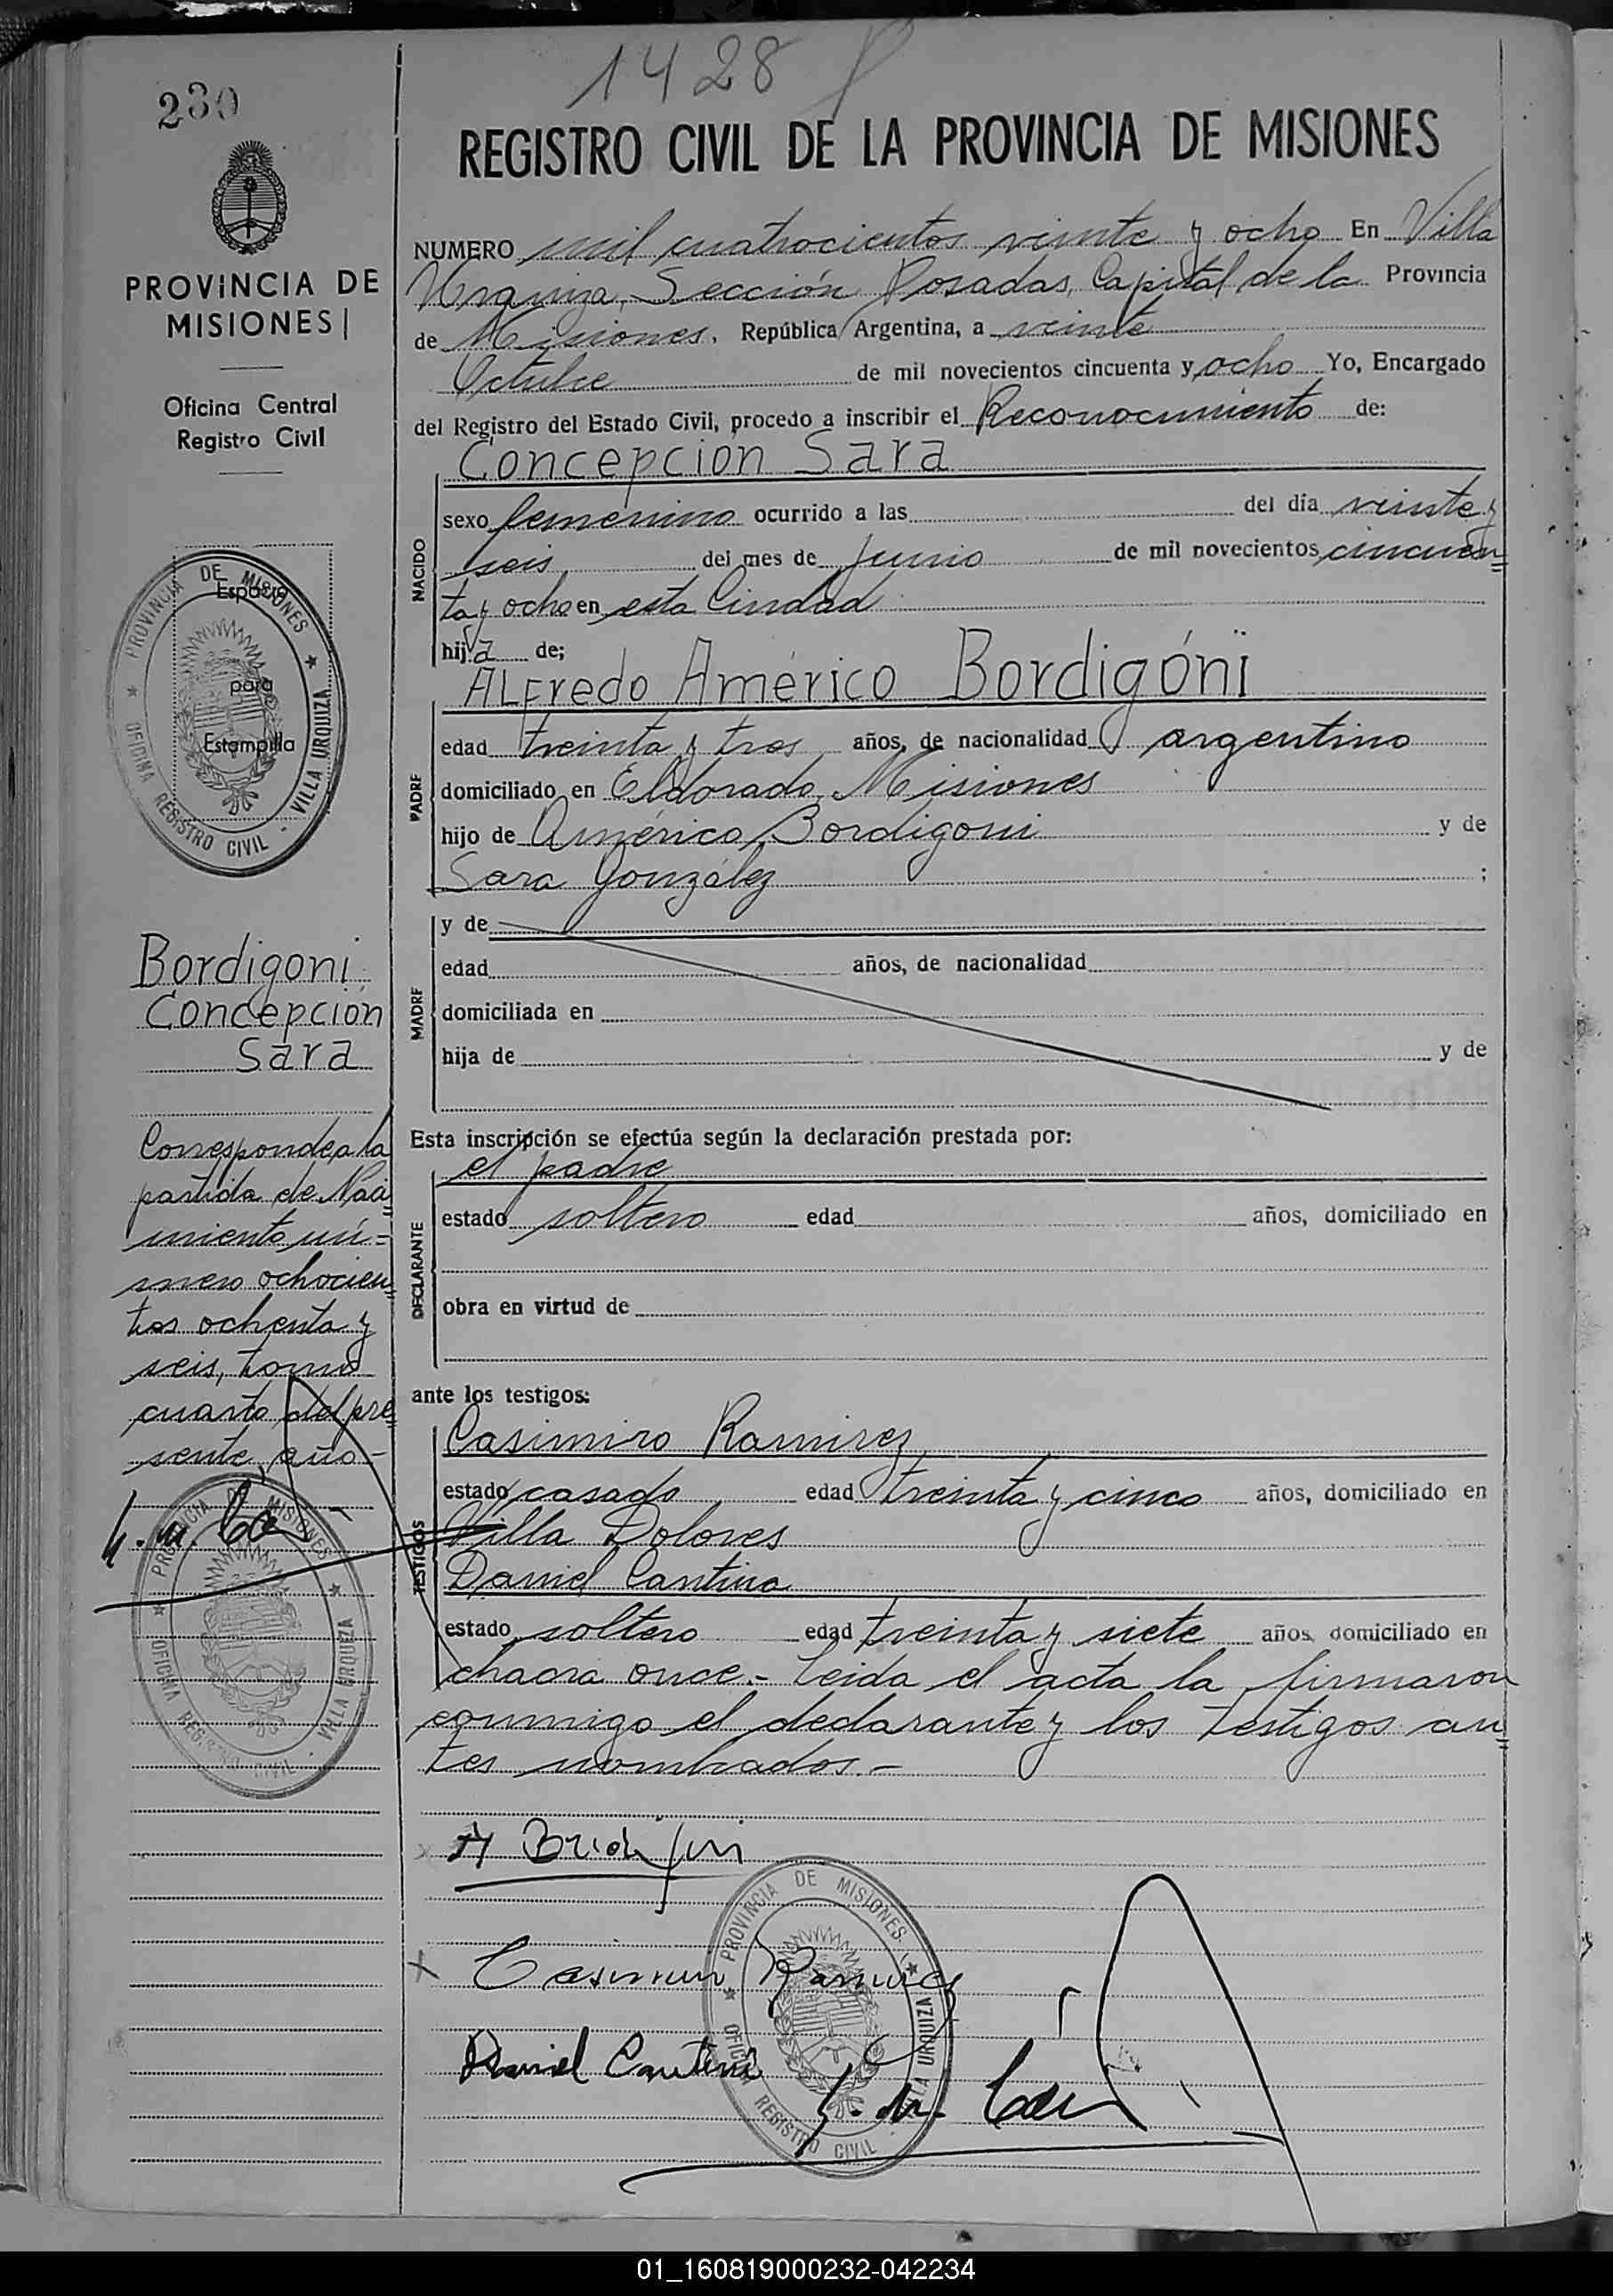 1428
230
REGISTRO CIVIL DE LA PROVINCIA DE MISIONES
PROVINCIA DE
MISIONES
Oficina Central
Registro Civil
Espacio
para
Estampilla
PROVINCIA DE MISIONES
OFICINA REGISTRO CIVIL - VILLA URQUIZA
Bordigoni
Concepción
Sara
Corresponde a la
partida de Naci=
miento nú=
mero ochocien=
tos ochenta y
seis, tomo
cuarto del pre=
sente año.-
PROVINCIA DE MISIONES
OFICINA REGISTRO CIVIL - VILLA URQUIZA
NUMERO mil cuatrocientos veinte y ocho En Villa
Urquiza, Sección Posadas, Capital de la Provincia
de Misiones, República Argentina, a veinte
Octubre de mil novecientos cincuenta y ocho Yo, Encargado
del Registro del Estado Civil, procedo a inscribir el Reconocimiento de:
Concepción Sara
NACIDO
sexo femenino ocurrido a las del día veinte y
seis del mes de Junio de mil novecientos cincuen=
ta y ocho en esta Ciudad
hija de;
Alfredo Américo Bordigóni
PADRE
edad treinta y tres años, de nacionalidad argentino
domiciliado en Eldorado, Misiones
hijo de Américo Bordigoni y de
Sara González ;
MADRE
y de
edad años, de nacionalidad
domiciliada en
hija de y de
Esta inscripción se efectúa según la declaración prestada por:
el padre
DECLARANTE
estado soltero edad años, domiciliado en
obra en virtud de
ante los testigos:
Casimiro Ramirez
TESTIGOS
estado casado edad treinta y cinco años, domiciliado en
Villa Dolores
Daniel Cantino
estado soltero edad treinta y siete años domiciliado en
chacra once.- Leida el acta la firmaron
conmigo el declarante y los testigos an=
tes nombrados.-
Casimiro Ramirez
Daniel Cantino
PROVINCIA DE MISIONES
OFICINA REGISTRO CIVIL - VILLA URQUIZA
01_160819000232-042234